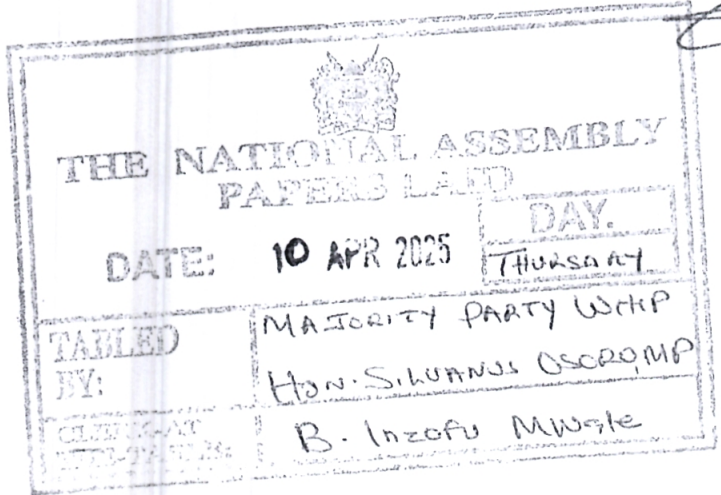 THE NATIONAL ASSEMBLY
PAPERS LAID
DATE: 10 APR 2025
DAY.
THURSDAY
TABLED BY:
MAJORITY PARTY WHIP
HON. SILVANUS OSORO, MP
CLERK-AT THE-TABLE:
B. Inzofu Mwale